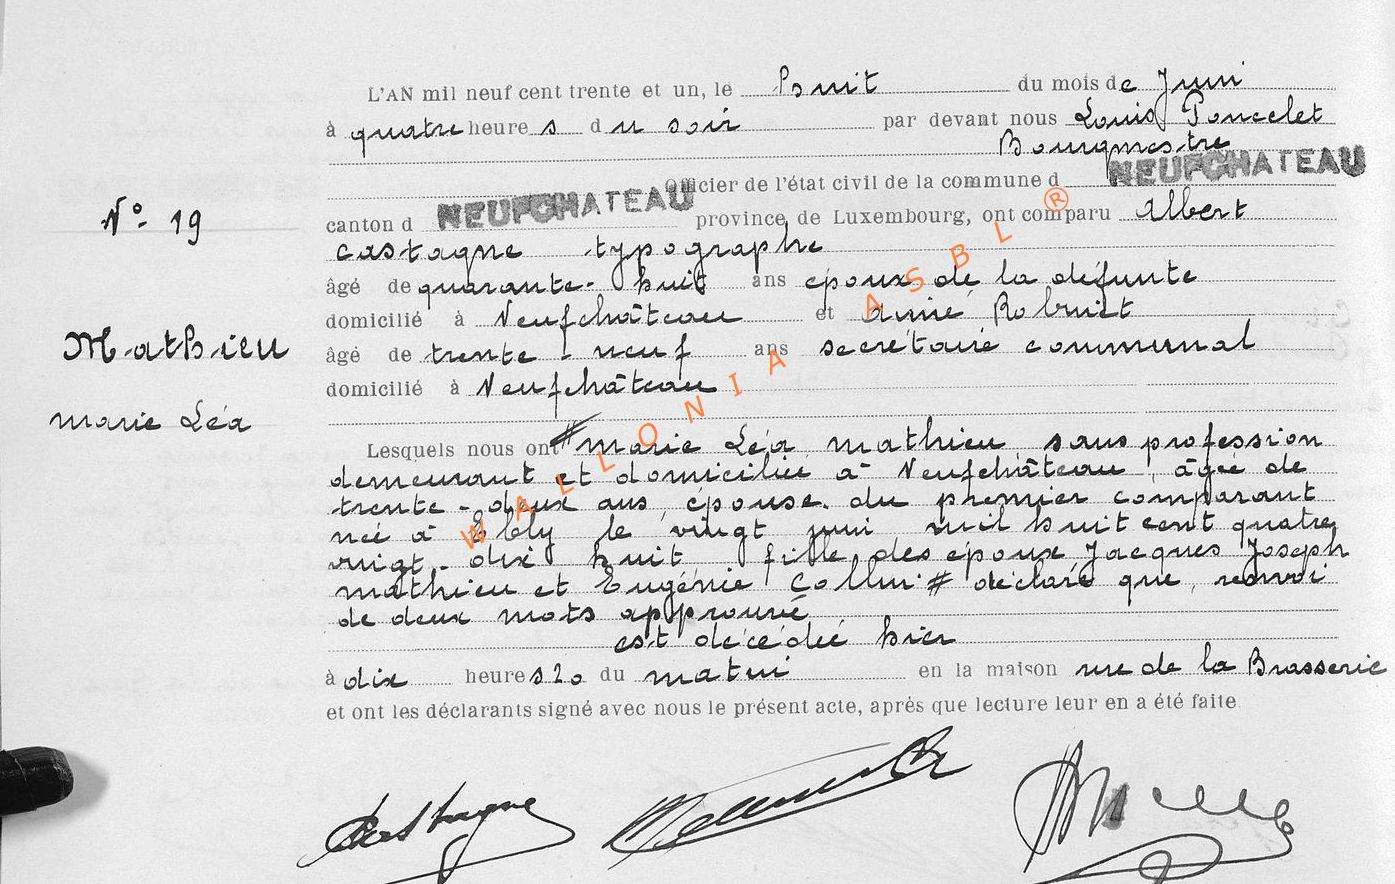 L'AN mil neuf cent trente et un, le huit du mois de Juin
à quatre heures du soir par devant nous Louis Poncelet
Bourgmestre
Officier de l'état civil de la commune d NEUFCHATEAU
canton d NEUFCHATEAU province de Luxembourg, ont comparu Albert
N° 19
Castagne typographe
âgé de quarante-huit ans époux de la défunte
domicilié à Neufchâteau et Aimé
Mathieu
âgé de trente-neuf ans secrétaire communal
domicilié à Neufchâteau
Marie Léa
Lesquels nous ont # Marie Léa Mathieu, sans profession
demeurant et domiciliée à Neufchâteau, âgée de
trente-deux ans, épouse du premier comparant
née à Ebly le vingt juin mil huit cent quatre
vingt-dix huit fille des époux Jacques Joseph
Mathieu et Eugénie Collin # déclaré que, renvoi
de deux mots approuvé
est décédée hier
à dix heures 20 du matin en la maison rue de la Brasserie
et ont les déclarants signé avec nous le présent acte, après que lecture leur en a été faite
Castagne
WALLONIA ASBL ®